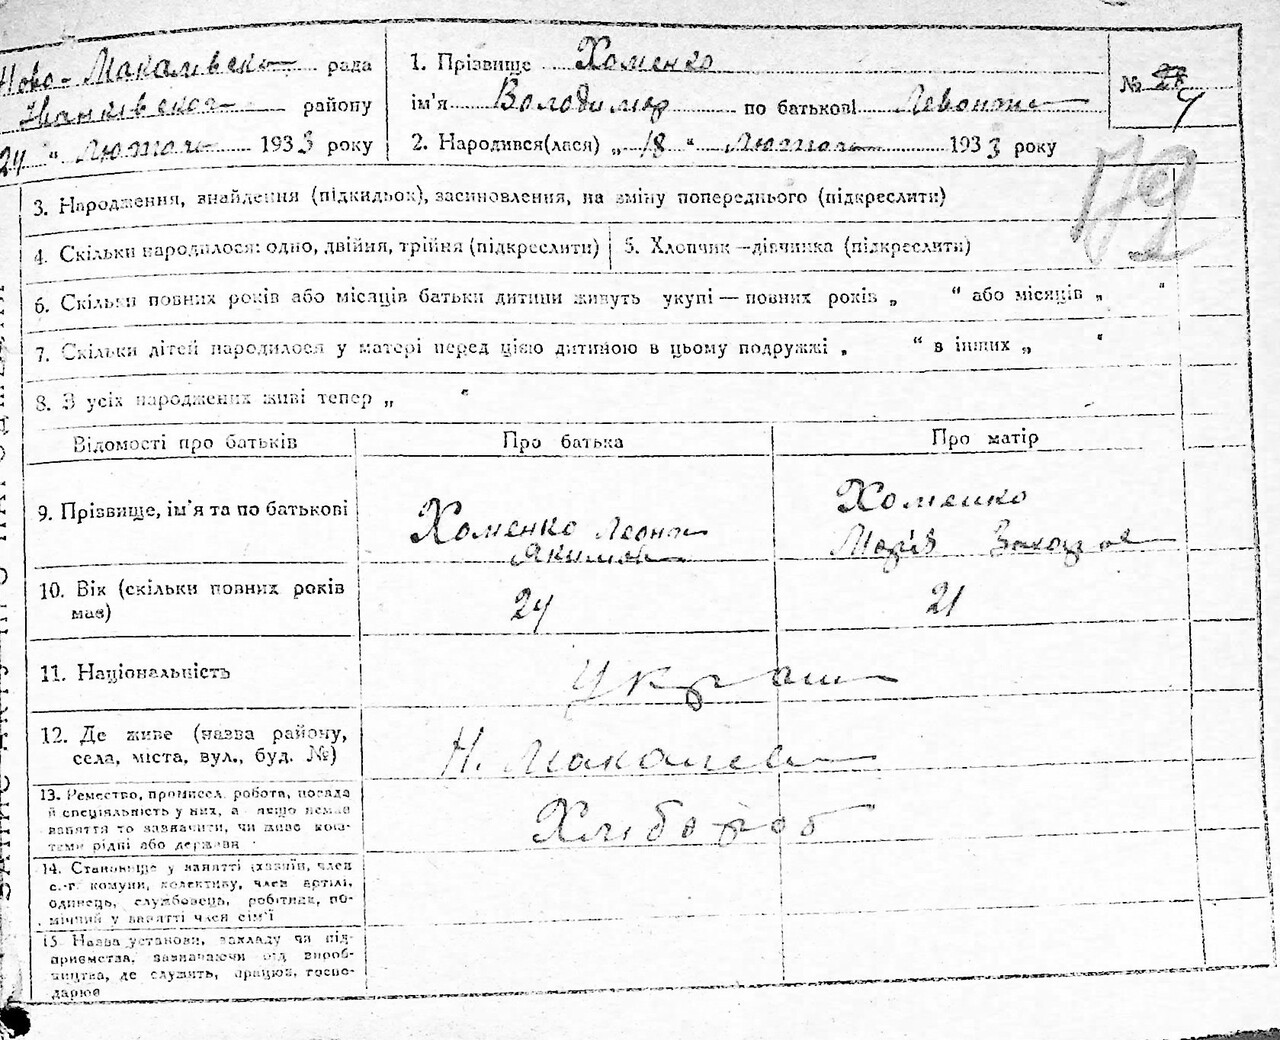 Ново-Макалевська рада
Іванківськог району
24 " Лютог 1933 року
1. Прізвище Хоменко
ім'я Володимир по батькові Левонтı
2. Народився(лася) „ 18 " Лютог 1933 року
№ 28
4
3. Народження, знайдення (підкидьок), засиновлення, на зміну попереднього (підкреслити)
4. Скільки народилося: одно, двійня, трійня (підкреслити) 5. Хлопчик—дівчинка (підкреслити)
6. Скільки повних років або місяців батьки дитини живуть укупі — повних років „ " або місяців „ "
7. Скільки дітей народилося у матері перед цією дитиною в цьому подружжі „ " в інших „ "
8. З усіх народжених живі тепер „ "
Відомості про батьків Про батька Про матір
9. Прізвище, ім'я та по батькові
Хоменко Леонт
Якимов
Хоменко
Марія Захар
10. Вік (скільки повних років
має)
24 21
11. Національність Україн
12. Де живе (назва району,
села, міста, вул., буд. №)
Н. Макалев
13. Ремество, промисел, робота, посада
й спеціяльність у них, а якщо немає
заняття то зазначити, чи живе кош-
тами рідні або держави
Хлібороб
14. Становище у занятті (хазяїн, член
с.-г. комуни, колективу, член артілі,
одинець, службовець, робітник, по-
мічний у занятті член сім'ї
15. Назва установи, закладу чи під-
приємства, зазначаючи рід вироб-
ництва, де служить, працює, госпо-
дарює